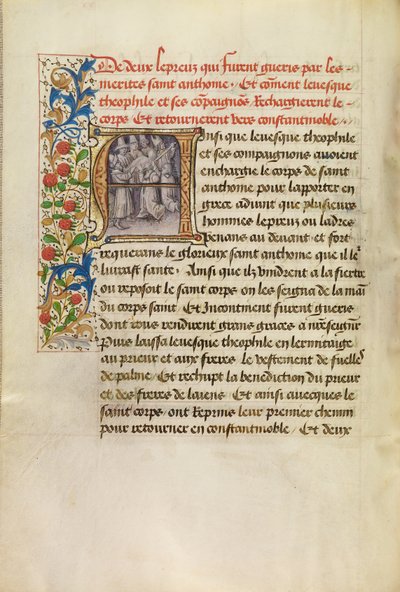 De deux lepreux qui furent gueris par les
merites saint anthome · Et coment levesque
theophile et ses compaignos Rechargierent le
corps Et retournerent vers constantmoble ·
Ainsi que levesque theophile
et ses compaignons avoient
enchargie le corps de saint
anthome pour lapporter en
grece advint que plusieurs
hommes lepreux ou ladres
venans au devant et fort
requerans le glorieux saint anthome que il leur
livrast sante / Ainsi que ilz vindrent a la fiertre
ou reposoit le saint corps on les seigna de la main
du corps saint / Et Incontment furent gueris
dont tous rendirent grans graces a nreseignr
Puis laissa levesque theophile en lermitaige
au prieur et aux freres le vestement de fuelles
de palme / Et rechupt la benediction du prieur
et des freres de laiens / Et ainsi avecques le
saint corps / ont Reprins leur premier chemin
pour retourner en constantmoble / Et deux